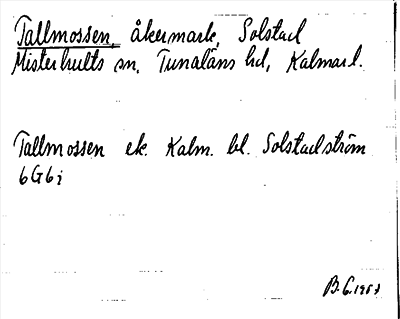 Tallmossen, åkermark, Solstad
Misterhults sn, Tunaläns hd, Kalmar l.
Tallmossen ek. Kalm. bl. Solstadström
6G6i
B.G. 1957